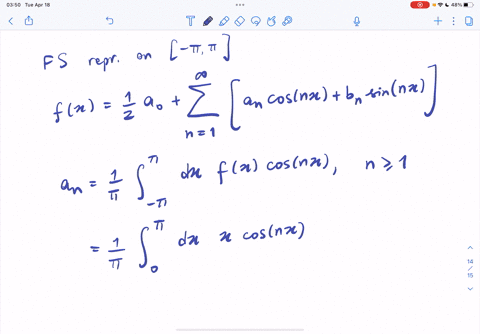 03:50 Tue Apr 18 48%
FS repr. on [-π, π]
f(x) = 1/2 a₀ + ∑_{n=1}^{∞} [aₙ cos(nx) + bₙ sin(nx)]
aₙ = 1/π ∫_{-π}^{π} dx f(x) cos(nx), n ≥ 1
= 1/π ∫_{0}^{π} dx x cos(nx)
14
/
15